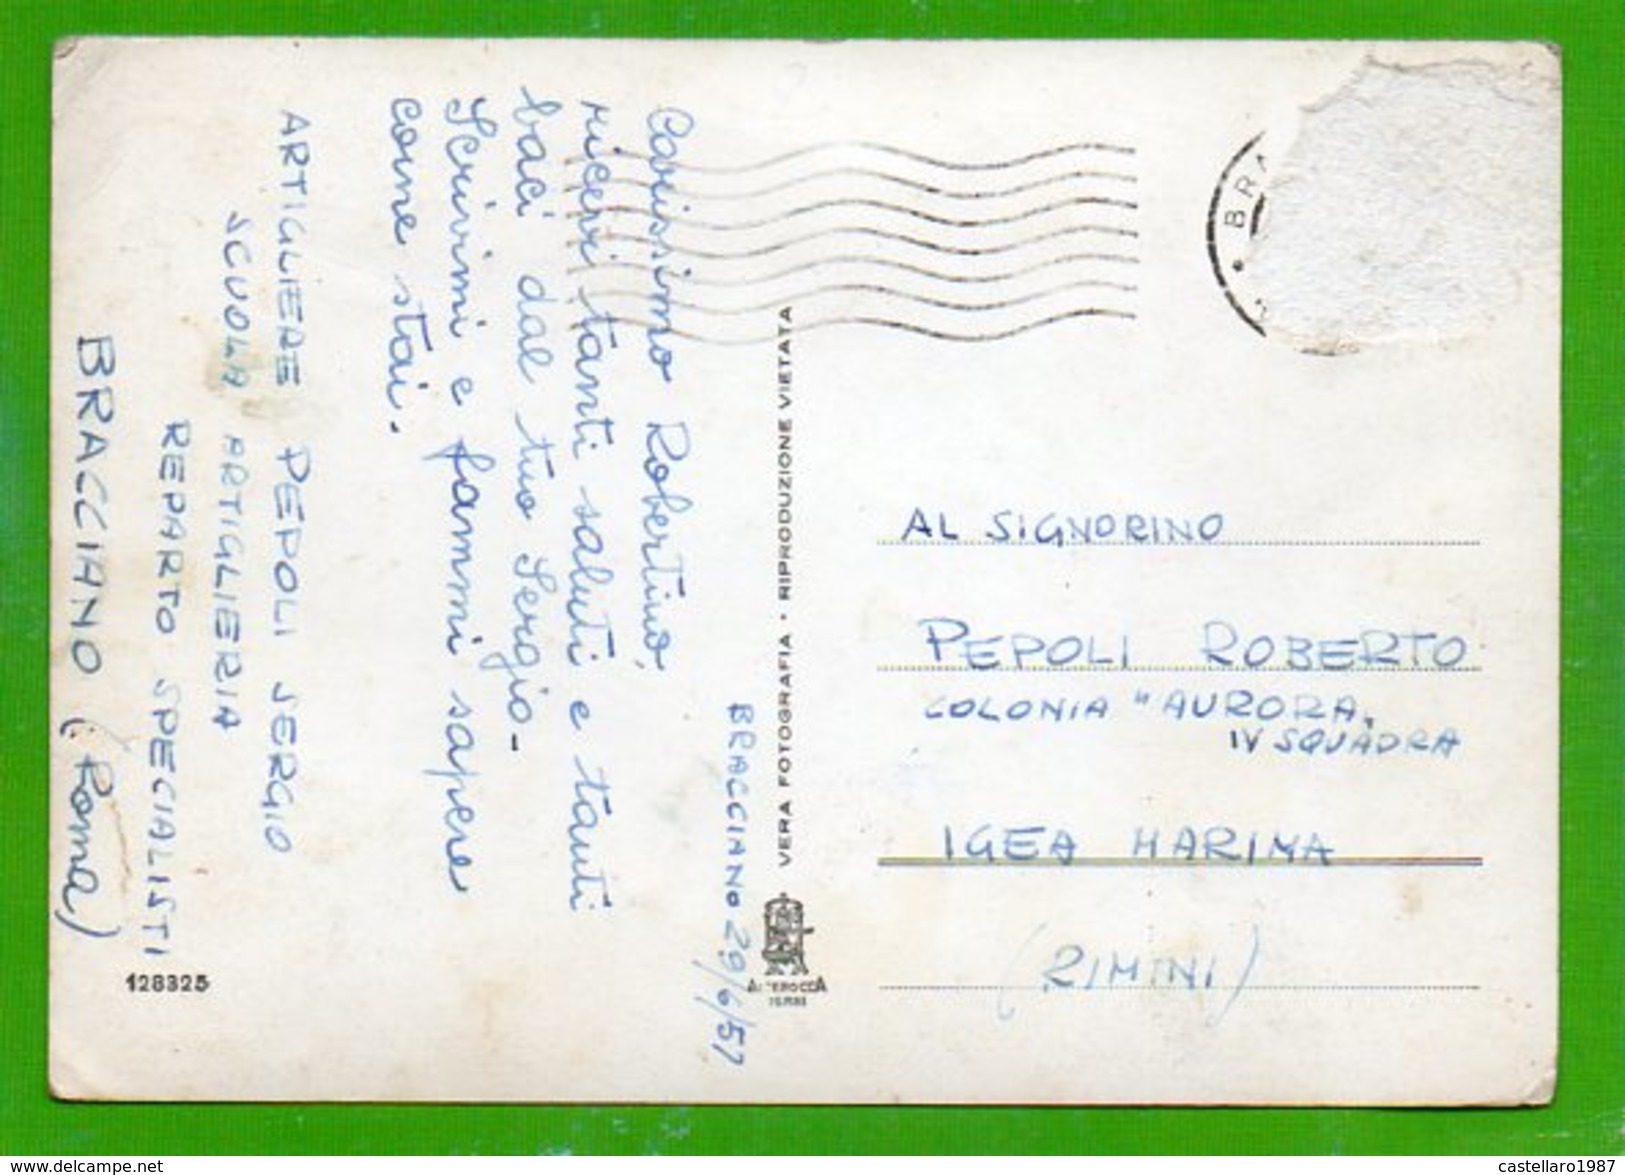 BRACCIANO 29/6/57
Carissimo Robertino,
ricevi tanti saluti e tanti
baci dal tuo Sergio-
Scrivimi e fammi sapere
come stai.
ARTIGLIERE PEPOLI SERGIO
SCUOLA ARTIGLIERIA
REPARTO SPECIALISTI
BRACCIANO (Roma)
128325
VERA FOTOGRAFIA • RIPRODUZIONE VIETATA
TERNI
BRA
AL SIGNORINO
PEPOLI ROBERTO
COLONIA "AURORA"
IV SQUADRA
IGEA MARINA
(RIMINI)
castellaro1987
delcampe.net